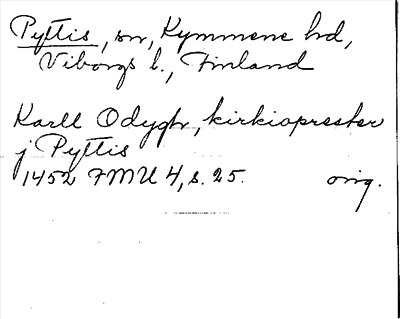 Pyttis, sn, Kymmene hd,
Viborgs l., Finland
Karll Odygh, kirkioprester
j Pyttis
1452 FMU 4, s. 25. orig.